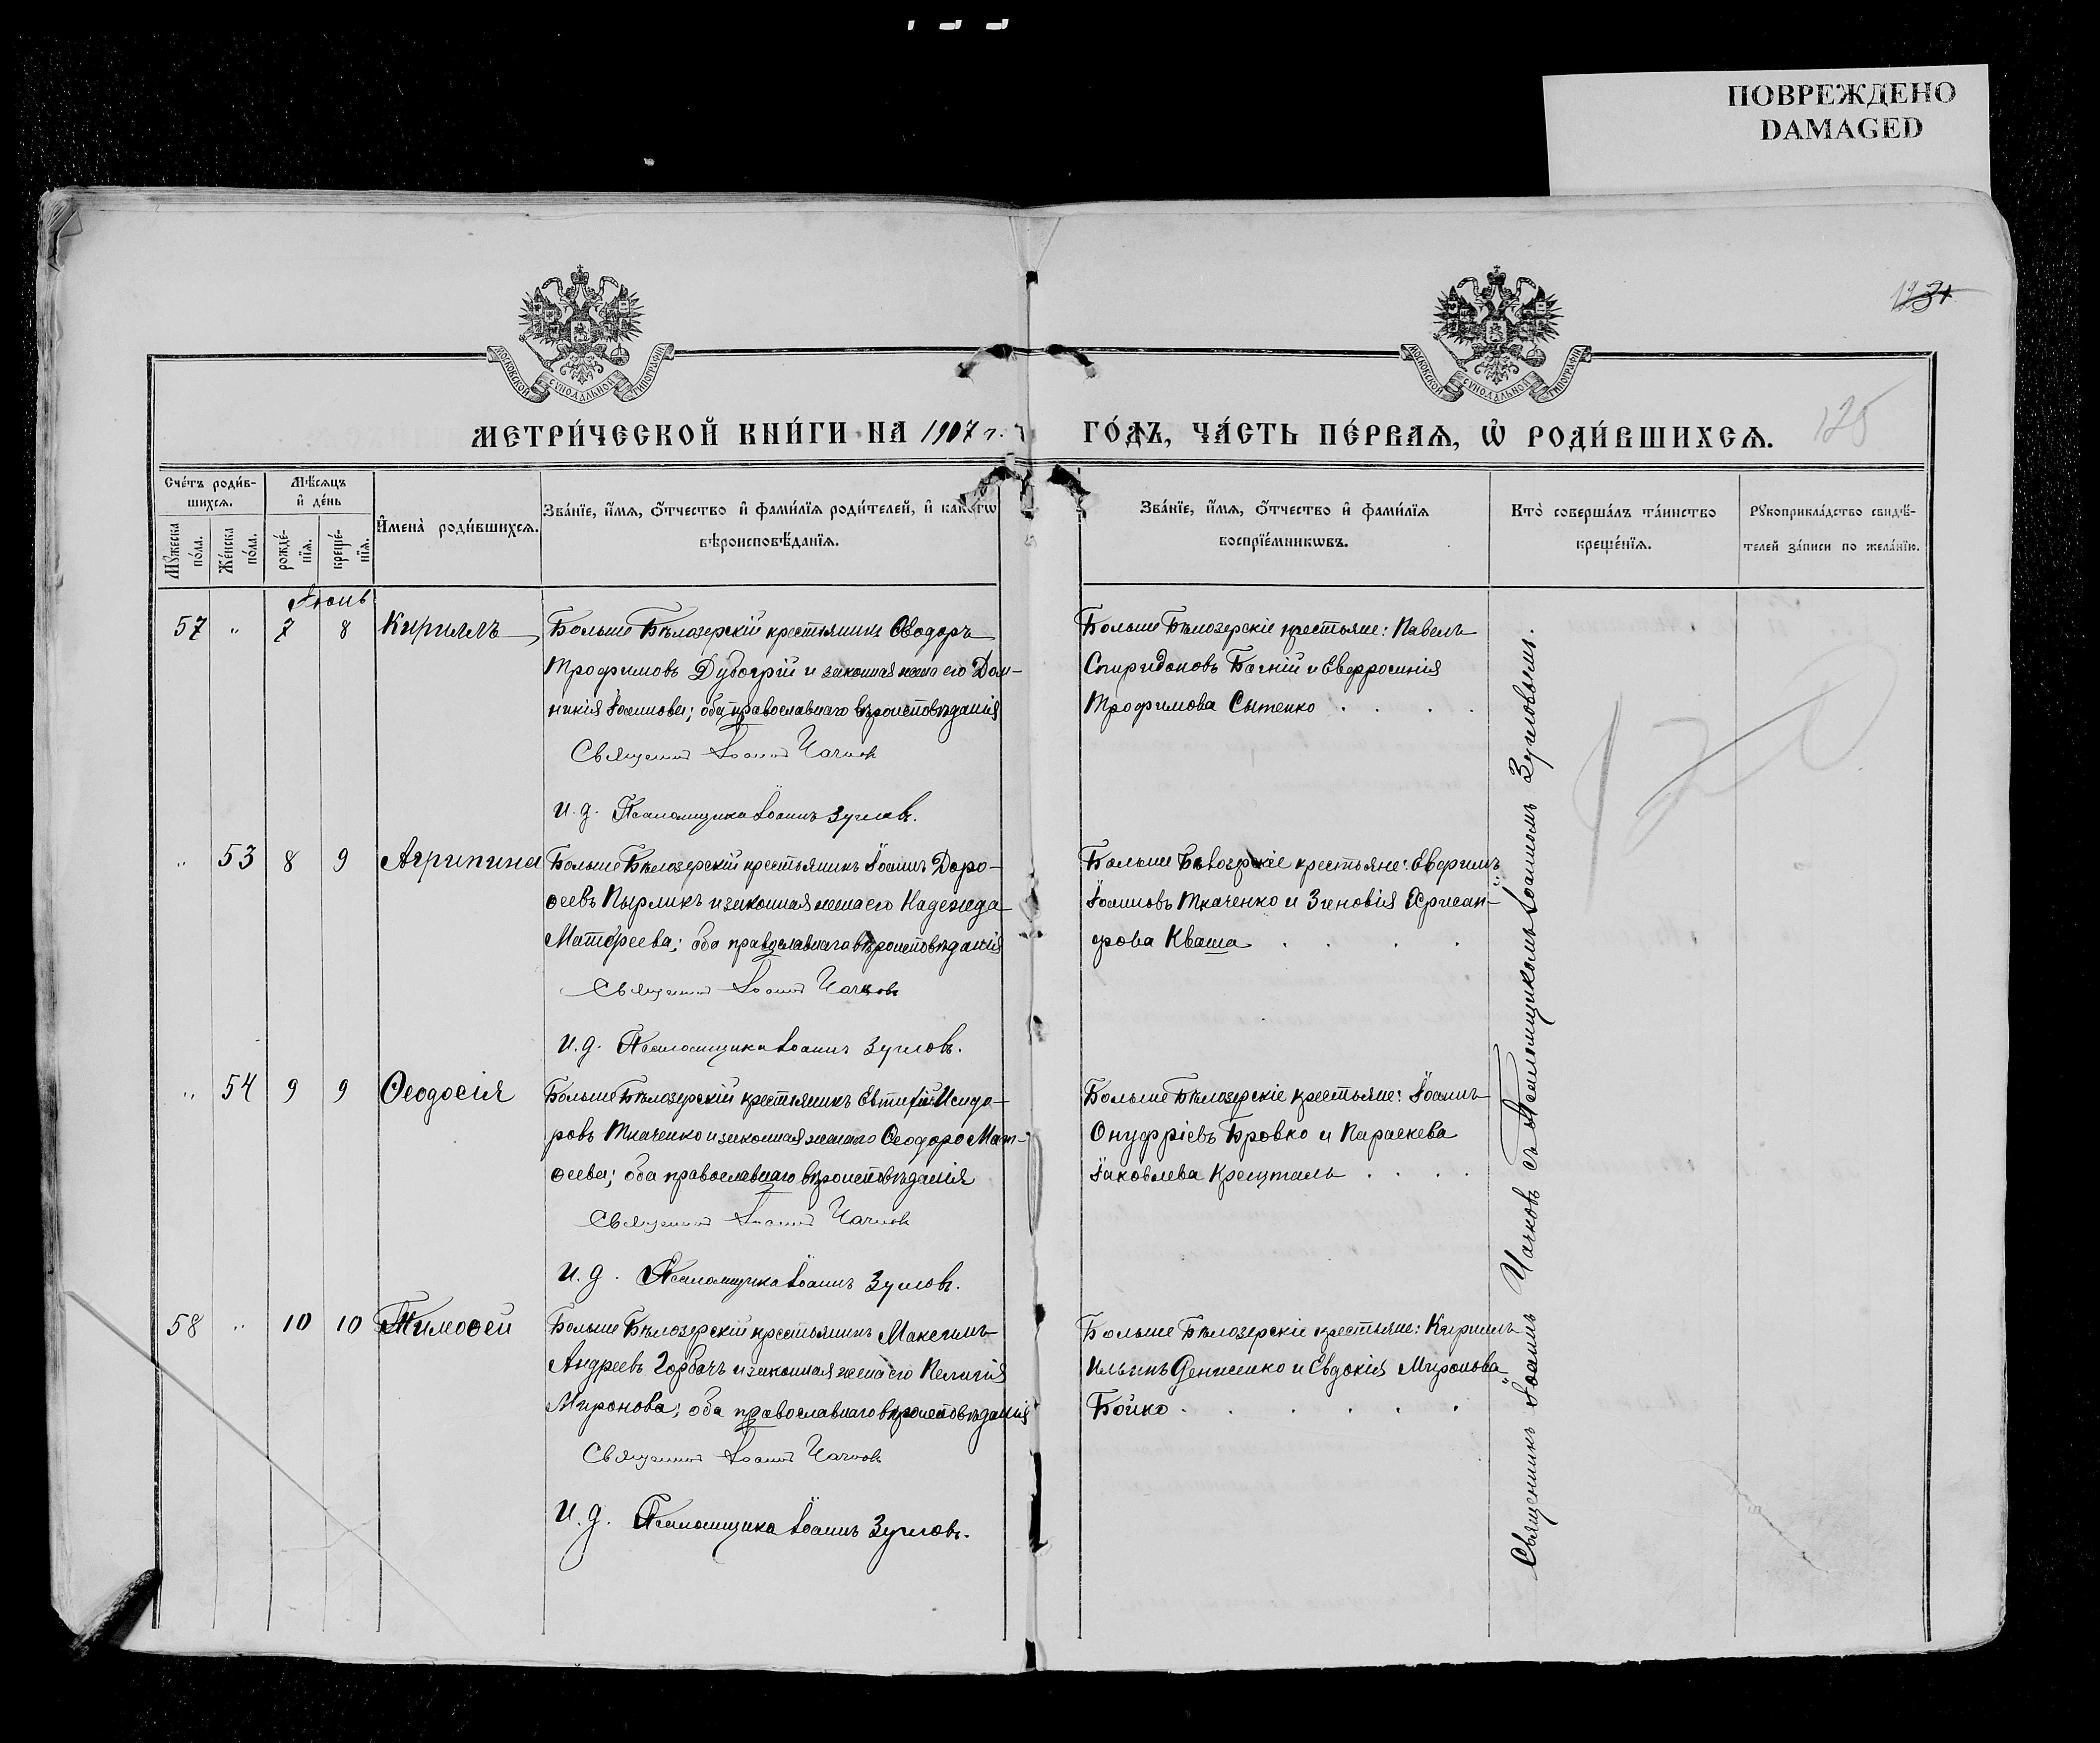 ПОВРЕЖДЕНО
DAMAGED
МОСКОВСКОЙ СУНОДАЛЬНОЙ ТИПОГРАФІИ
МОСКОВСКОЙ СУНОДАЛЬНОЙ ТИПОГРАФІИ
МЕТРИ́ЧЕСКОЙ КНИ́ГИ НА 1907 г.
ГО́ДЪ, ЧА́СТЬ ПЕ́РВАЯ, Ѡ҆ РОДИ́ВШИХСЯ.
125
Сче́тъ роди́в-
шихся.
Мѣ́сяцъ
и҆ де́нь
Мꙋ́жеска
по́ла.
Же́нска
по́ла.
рожде́-
нїя.
креще́-
нїя.
И҆мена̀ роди́вшихся.
Зва́нїе, и҆́мя, ѻ҆́тчество и҆ фами́лїя роди́телей, и҆ како́гѡ
вѣроисповѣ́данїя.
Зва́нїе, и҆́мя, ѻ҆́тчество и҆ фами́лїя
воспрїе́мникѡвъ.
Кто̀ соверша́лъ та́инство
креще́нїя.
Рꙋкоприкла́дство свидѣ́-
телей за́писи по жела́нїю.
Іюнь
57 " 7 8 Кириллъ
Больше Бѣлозерскій крестьянинъ Ѳеодоръ
Трофимовъ Дубогрій и законная жена его Дом-
никія Іоаннова; оба православнаго вѣроисповѣданія
Священник Іоанн Чачков
И. д. Псаломщика Іоаннъ Зуиловъ.
Больше Бѣлозерскіе крестьяне: Павелъ
Спиридоновъ Багній и Евфросинія
Трофимова Сытенко . . . .
" 53 8 9 Агрипина
Больше Бѣлозерскій крестьянинъ Іоаннъ Доро-
ѳеевъ Пырликъ и законная жена его Надежда
Матѳеева; оба православнаго вѣроисповѣданія
Священник Іоанн Чачков
И. д. Псаломщика Іоаннъ Зуиловъ.
Больше Бѣлозерскіе крестьяне: Евфимъ
Іоанновъ Ткаченко и Зиновія Хрисан-
фова Кваша . . . .
" 54 9 9 Ѳеодосія
Больше Бѣлозерскій крестьянинъ Евтихій Исидо-
ровъ Ткаченко и законная жена его Ѳеодора Мат-
ѳеева; оба православнаго вѣроисповѣданія
Священник Іоанн Чачков
И. д. Псаломщика Іоаннъ Зуиловъ.
Больше Бѣлозерскіе крестьяне: Іоаннъ
Онуфріевъ Бровко и Параскева
Іаковлева Крешталь . . . .
58 " 10 10 Тимоѳей
Больше Бѣлозерскій крестьянинъ Максимъ
Андреевъ Горбачъ и законная жена его Пелагія
Миронова; оба православнаго вѣроисповѣданія
Священник Іоанн Чачков
И. д. Псаломщика Іоаннъ Зуиловъ.
Больше Бѣлозерскіе крестьяне: Кириллъ
Ильинъ Денисенко и Евдокія Миронова
Бойко . . . . . .
Священникъ Іоаннъ Чачковъ съ Псаломщикомъ Іоанномъ Зуиловымъ.